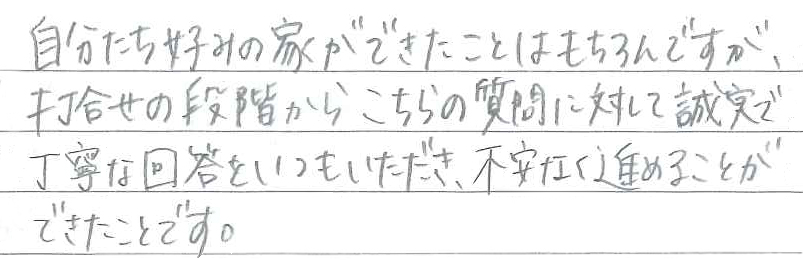 自分たち好みの家ができたことはもちろんですが、
打合せの段階からこちらの質問に対して誠実で
丁寧な回答をいつもいただき、不安なく進めることが
できたことです。